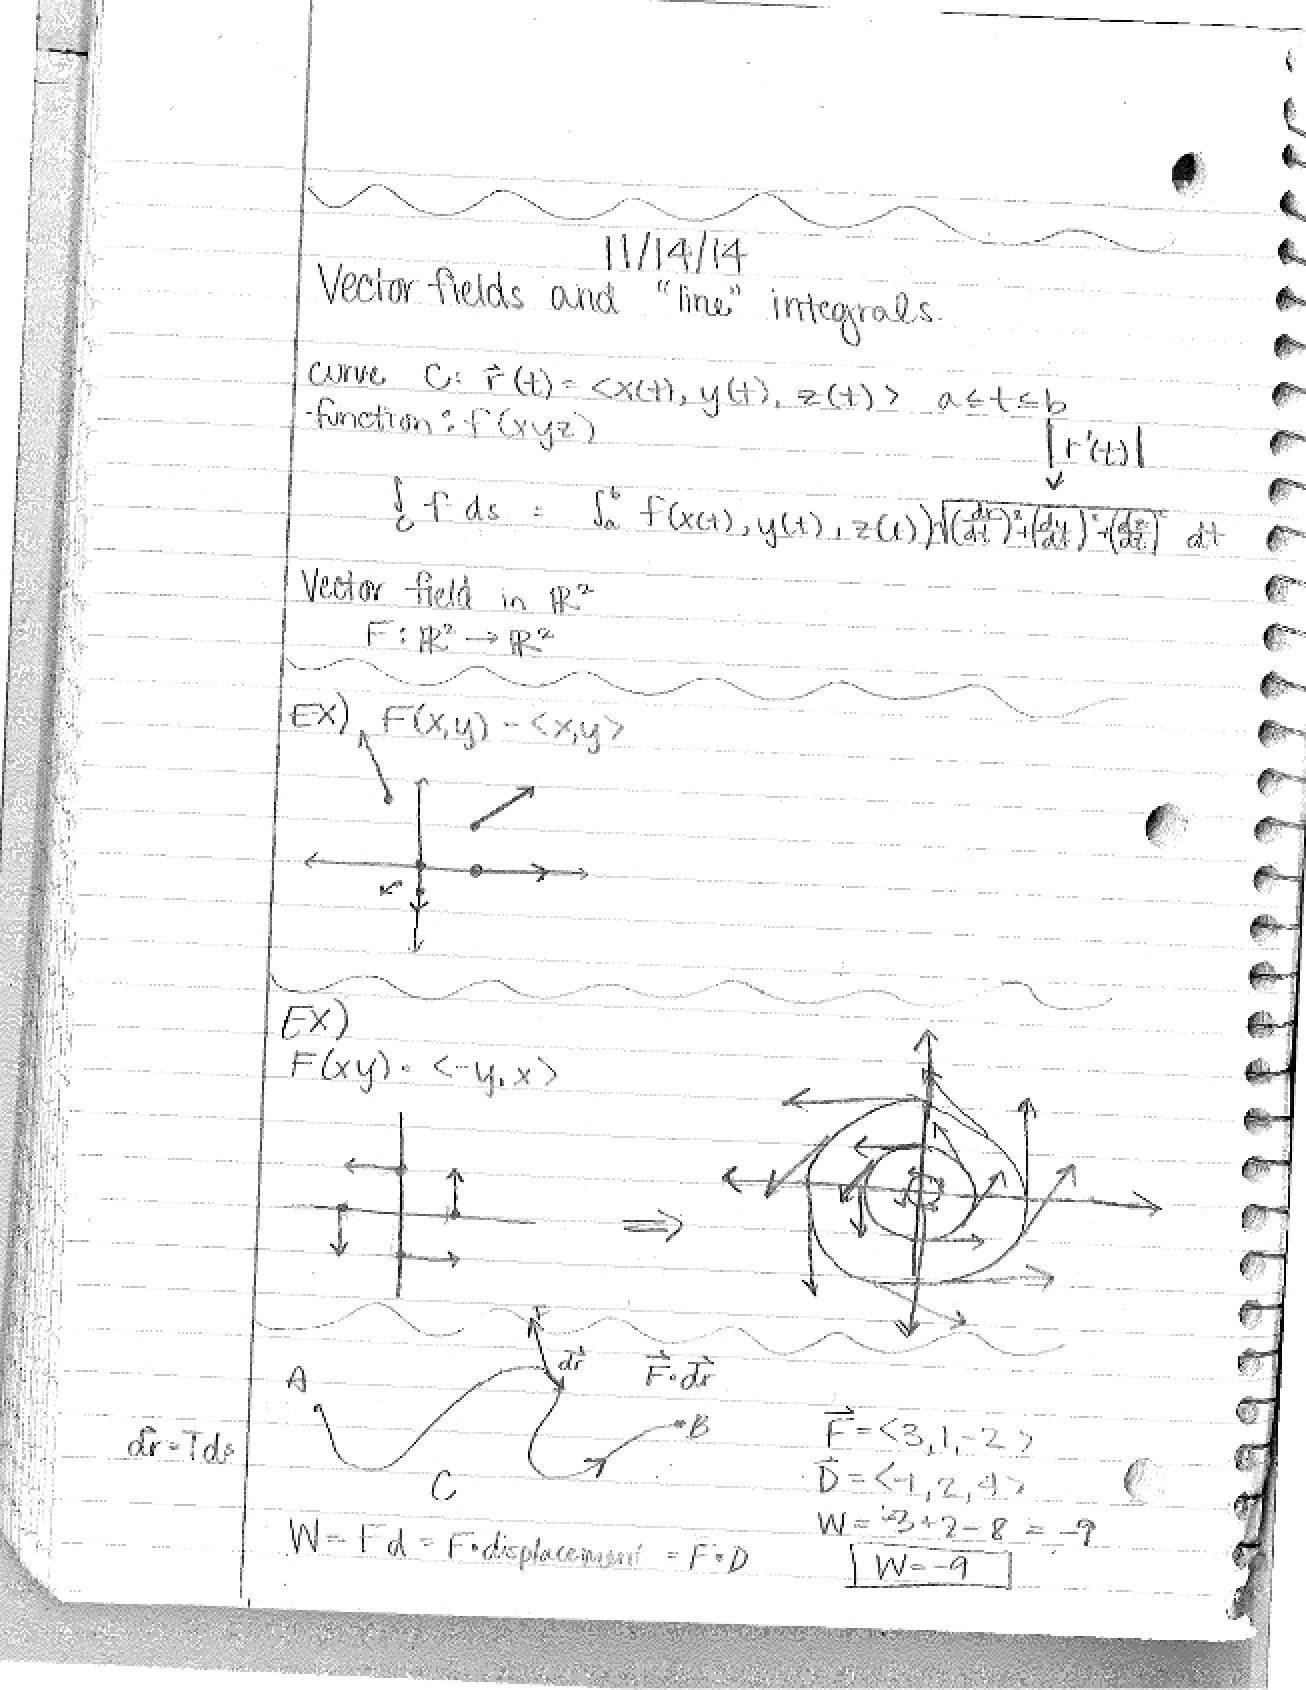 11/14/14
Vector fields and "line" integrals.
curve C: r⃗(t) = <x(t), y(t), z(t)> a ≤ t ≤ b
function: f(xyz)
|r'(t)|
∫_C f ds = ∫_a^b f(x(t), y(t), z(t)) √((dx/dt)²+(dy/dt)²+(dz/dt)²) dt
Vector field in ℝ²
F: ℝ² → ℝ²
EX) F(x,y) = <x,y>
EX)
F(xy) = <-y, x>
⇒
A
dr⃗
F⃗·dr⃗
B
C
dr⃗ = T ds
F⃗ = <3, 1, -2>
D⃗ = <-1, 2, 4>
W = -3+2-8 = -9
W = -9
W = Fd = F·displacement = F·D